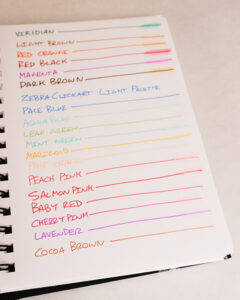 VIRIDIAN
LIGHT BROWN
RED ORANGE
RED BLACK
MAGENTA
DARK BROWN
ZEBRA CLICKART LIGHT PALETTE
PALE BLUE
AQUA BLUE
LEAF GREEN
MINT GREEN
MARIGOLD
PALE ORANGE
PEACH PINK
SALMON PINK
BABY RED
CHERRY PINK
LAVENDER
COCOA BROWN